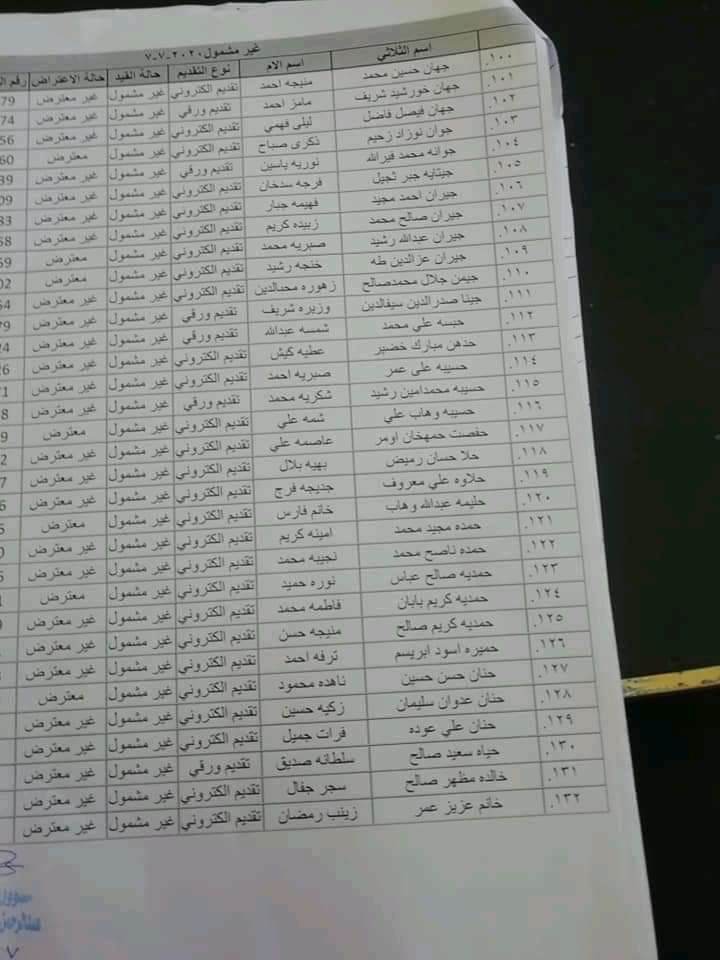 غير مشمول ٢٠٢٠-٧-٧
اسم الثلاثي اسم الام نوع التقديم حالة القيد حالة الاعتراض رقم
١٠٠. جهان حسين محمد منيجه احمد تقديم الكتروني غير مشمول غير معترض 79
١٠١. جهان خورشيد شريف مامز احمد تقديم ورقي غير مشمول غير معترض 74
١٠٢. جهان فيصل فاضل ليلى فهمي تقديم الكتروني غير مشمول غير معترض 56
١٠٣. جوان نوزاد زحيم ذكرى صباح تقديم الكتروني غير مشمول معترض 60
١٠٤. جوانه محمد فيرالله نوريه ياسين تقديم ورقي غير مشمول غير معترض 39
١٠٥. جيتايه جبر ثجيل فرجه سدخان تقديم الكتروني غير مشمول غير معترض 09
١٠٦. جيران احمد مجيد فهيمه جبار تقديم الكتروني غير مشمول غير معترض 83
١٠٧. جيران صالح محمد زبيده كريم تقديم الكتروني غير مشمول غير معترض 68
١٠٨. جيران عبدالله رشيد صبريه محمد تقديم الكتروني غير مشمول معترض 59
١٠٩. جيران عزالدين طه خنجه رشيد تقديم الكتروني غير مشمول معترض 02
١١٠. جيمن جلال محمدصالح زهوره محىالدين تقديم الكتروني غير مشمول غير معترض 54
١١١. جينا صدرالدين سيفالدين وزيره شريف تقديم ورقي غير مشمول غير معترض 79
١١٢. حبسه علي محمد شمسه عبدالله تقديم ورقي غير مشمول غير معترض 24
١١٣. حدهن مبارك خضير عطيه كيش تقديم الكتروني غير مشمول غير معترض 26
١١٤. حسيبه على عمر صبريه احمد تقديم الكتروني غير مشمول غير معترض 71
١١٥. حسيبه محمدامين رشيد شكريه محمد تقديم ورقي غير مشمول غير معترض 8
١١٦. حسيبه وهاب علي شمه علي تقديم الكتروني غير مشمول معترض 9
١١٧. حفصت حمهخان اومر عاصمه علي تقديم الكتروني غير مشمول غير معترض 2
١١٨. حلا حسان رميض بهيه بلال تقديم الكتروني غير مشمول غير معترض 7
١١٩. حلاوه علي معروف جديجه فرج تقديم الكتروني غير مشمول غير معترض 6
١٢٠. حليمه عبدالله وهاب خانم فارس تقديم الكتروني غير مشمول معترض
١٢١. حمده مجيد محمد امينه كريم تقديم الكتروني غير مشمول غير معترض
١٢٢. حمده ناصح محمد نجيبه محمد تقديم الكتروني غير مشمول غير معترض
١٢٣. حمديه صالح عباس نوره حميد تقديم الكتروني غير مشمول معترض
١٢٤. حمديه كريم بابان فاطمه محمد تقديم الكتروني غير مشمول غير معترض
١٢٥. حمديه كريم صالح منيجه حسن تقديم الكتروني غير مشمول غير معترض
١٢٦. حميره اسود ابريسم ترفه احمد تقديم الكتروني غير مشمول غير معترض
١٢٧. حنان حسن حسين ناهده محمود تقديم الكتروني غير مشمول معترض
١٢٨. حنان عدوان سليمان زكيه حسين تقديم الكتروني غير مشمول غير معترض
١٢٩. حنان علي عوده فرات جميل تقديم الكتروني غير مشمول غير معترض
١٣٠. حياه سعيد صالح سلطانه صديق تقديم ورقي غير مشمول غير معترض
١٣١. خالده مظهر صالح سجر جفال تقديم الكتروني غير مشمول غير معترض
١٣٢. خانم عزيز عمر زينب رمضان تقديم الكتروني غير مشمول غير معترض